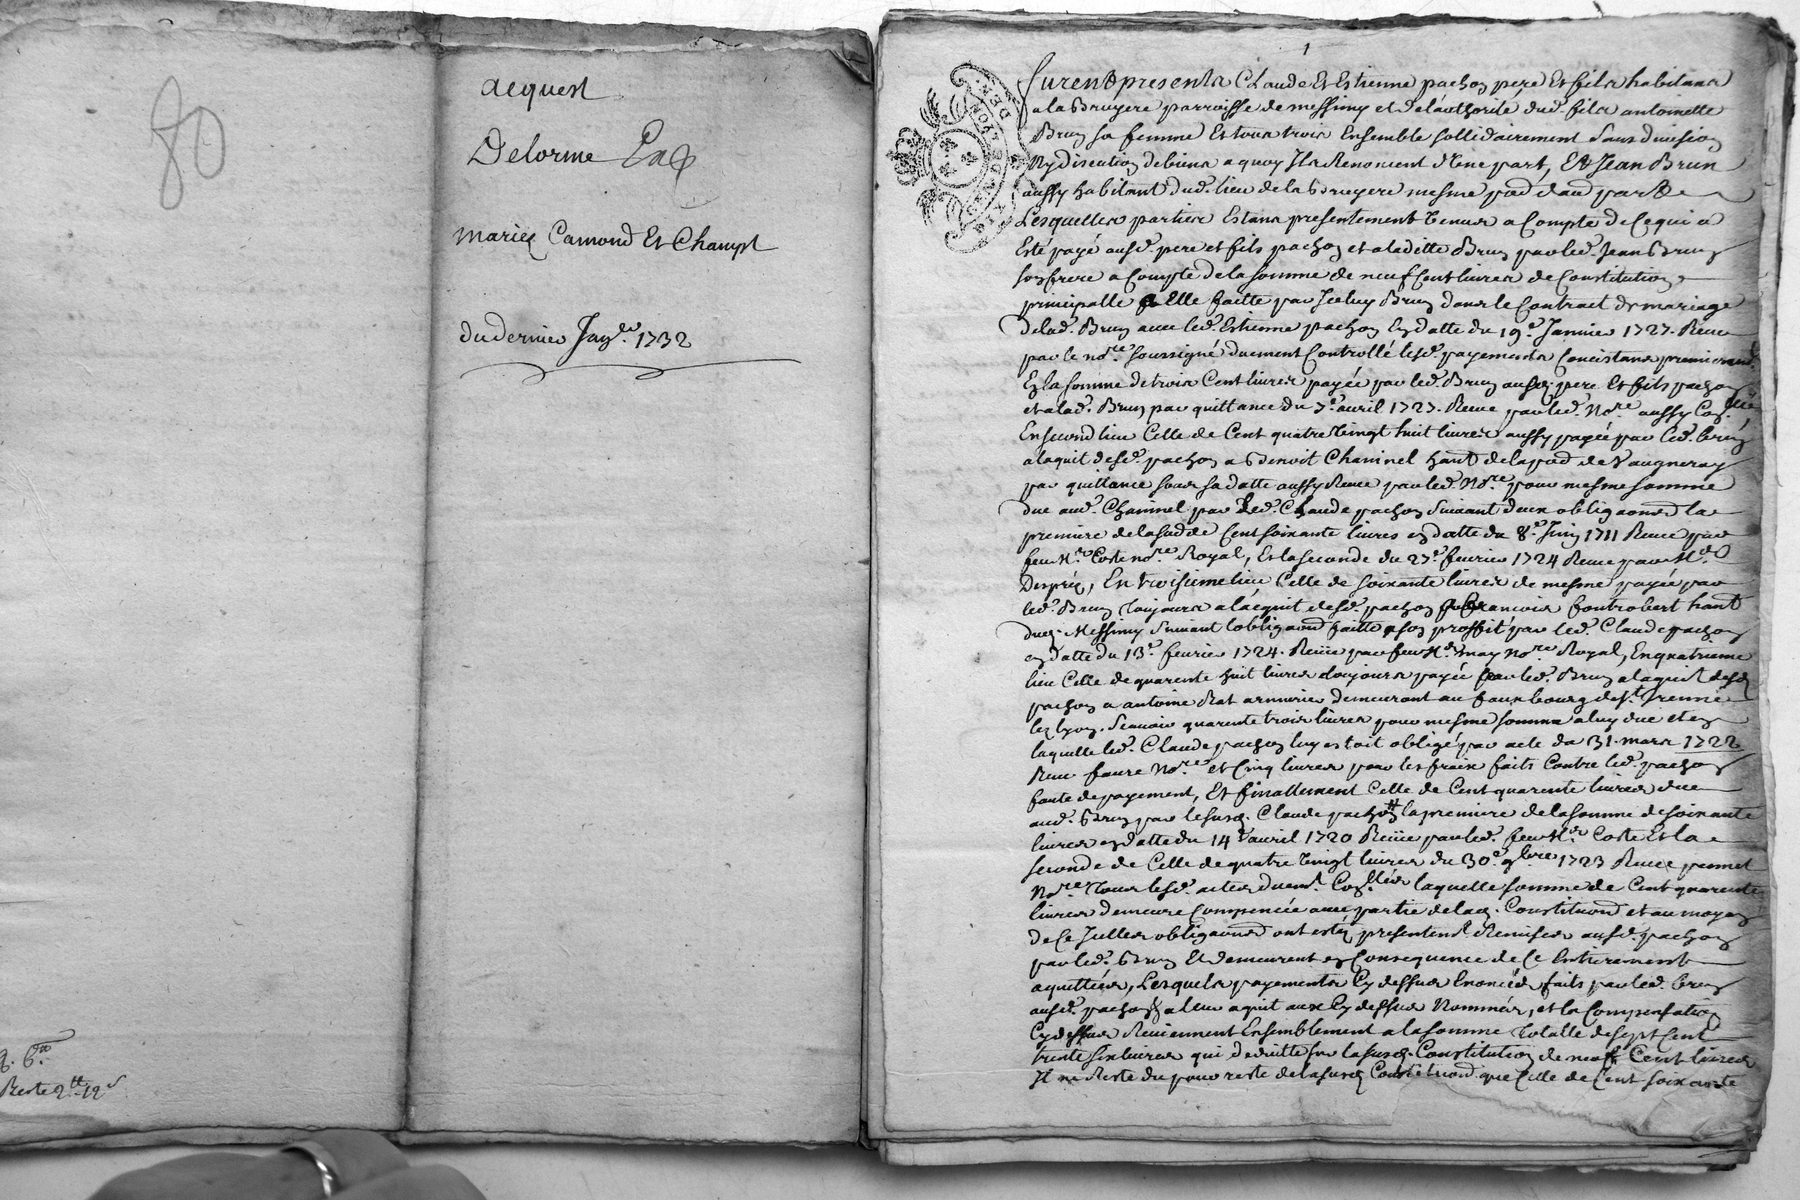 80
acquest
Delorme
mariez Camond Et Champt
du dernier Janv.er 1732
Reste 2tt-12s
1
GEN. DE LYON
Furent presents Claude Et Estienne pachon pere Et fils habitans
a la Bruyere parroisse de messimy et de lauthorité dud. fils antoinette
Brun sa femme Et tous trois Ensemble sollidairement sans division
Ny discution de biens a quoy Ils Renoncent d'une part, Et Jean Brun
aussy habitant dud. lieu de la Bruyere mesme pad. d'aud. part
Lesquelles parties Estans presentement Venues a Compte de Ce qui a
Esté payé ausd. pere et fils pachon et a laditte Brun par led. Jean Brun
son frere a Compte de la somme de neuf Cent livres de Constitution
principalle a Elle faitte par Iceluy Brun dans le Contrat de mariage
de lad. Brun avec led. Estienne pachon En datte du 19e Janvier 1727. Receu
par le nore soussigné duement Controllé lesd. payements Concistans premierement
En la somme de trois Cent livres payée par led. Brun ausd. pere Et fils pachon
et a lad. Brun par quittance du 7e avril 1727. Receue par led. Nore aussy
En second lieu Celle de Cent quatre Vingt huit livres aussy payée par led. brun
a laquit desd. pachon a Benoit Chaninel hant de la pad de Vaugneray
par quittance sous sa datte aussy Receue par led. Nore pour mesme somme
due aud. Chaninel par led. Claude pachon suivant deux obligaonns la
premiere de la so de Cent soixante livres en datte du 8e Juin 1711 Receue par
feu Me Coste nore Royal, Et la seconde du 27e fevrier 1724 Receue par Me
Desprez, En troisieme lieu Celle de soixante livres de mesme payée par
led. Brun toujours a lacquit desd. pachon a francois fontrobert hant
dud. Messimy suivant lobligaonn faitte a son proffit par led. Claude pachon
en datte du 13e fevrier 1724. Receue par feu Me may Nore Royal, En quatrieme
lieu Celle de quarente huit livres toujours payée par led. Brun a laquit desd.
pachon a antoine Rat armurier demeurant au fauxbourg de St Irennée
lez lyon. Scavoir quarente trois livres pour mesme somme a luy due et en
laquelle led. Claude pachon luy estoit obligé par acte du 31. mars 1722
Receu faure Nore et Cinq livres pour les fraix faits Contre led. pachon
faute de payement, Et finallement Celle de Cent quarente livres due
aud. Brun par le susd. Claude pachon la premiere de la somme de soixante
livres en datte du 14e avril 1720 Receue par led. feu Me Coste Et la
seconde de Celle de quatre Vingt livres du 30e 9bre 1723 Receue par
Nore Tous lesd. actes laquelle somme de Cent quarente
livres demeure Compencée avec partie de lad. Constituonn et au moyen
de Ce Icelles obligaonns ont esté presentemt Remises ausd. pachon
par led. Brun Et demeurent en Consequence de Ce Entierement
aquittées, Lesquels payements Cy dessus Enoncés faits par led. brun
ausd. pachon Et a leur aquit aux Cy dessus Nommés, et la Compensation
Cy dessus Reviennent Ensemblement a la somme Totalle de sept Cent
trente six livres qui deduitte sur la susd. Constitution de neuf Cent livres
Il ne Reste du pour reste de la susd. Constituonn que Celle de Cent soixante